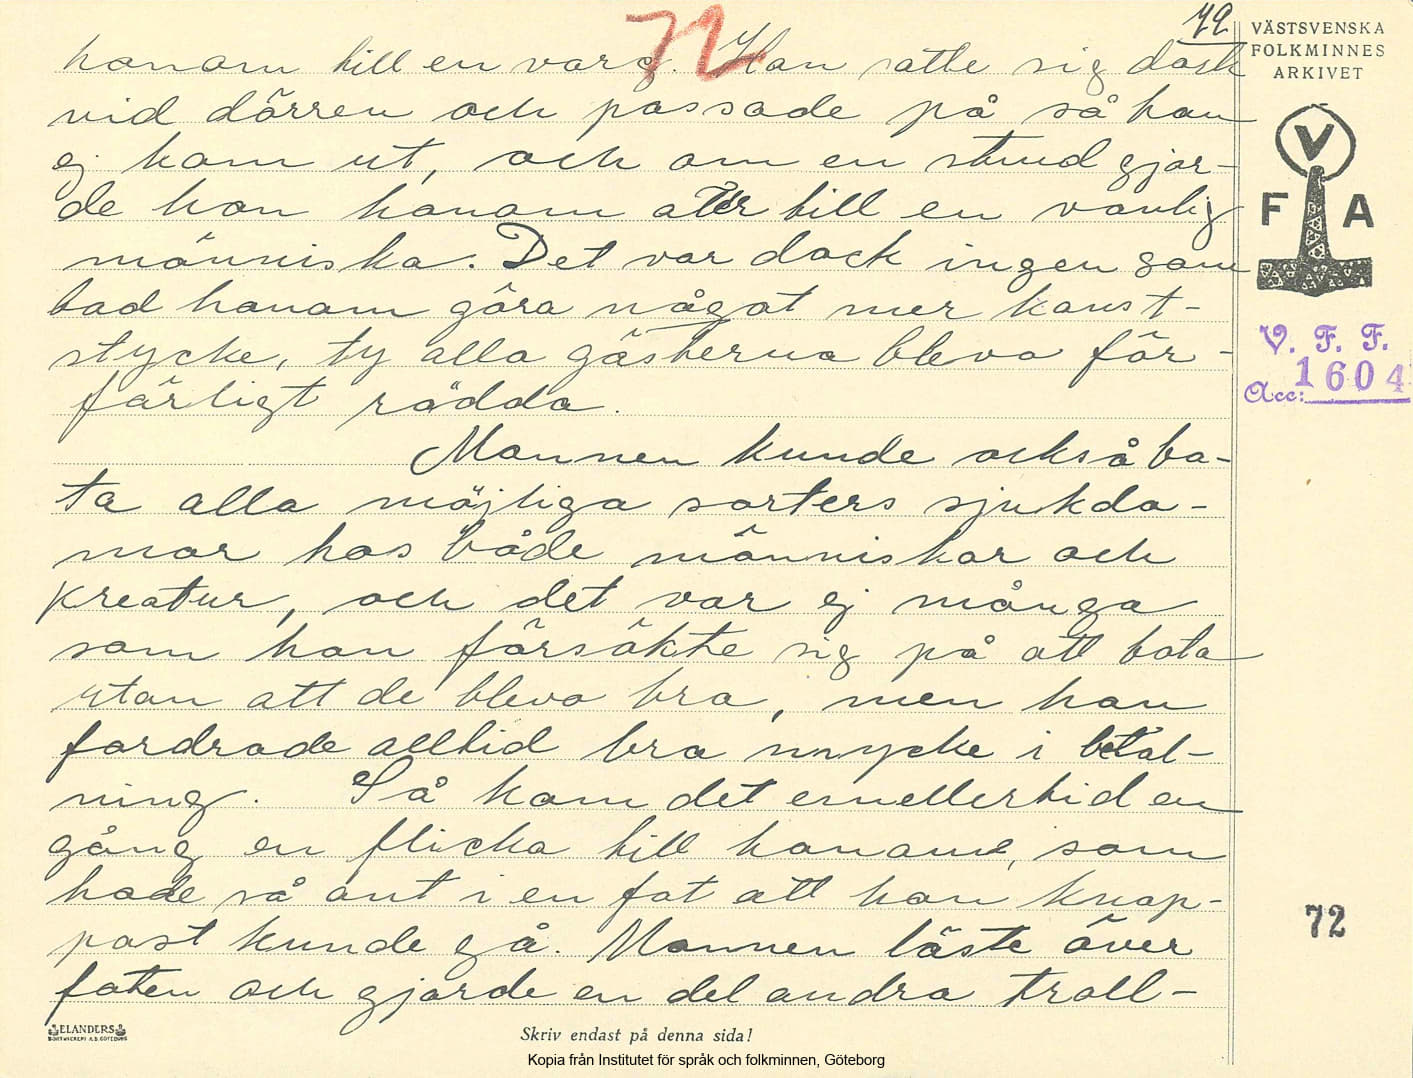 72
72
VÄSTSVENSKA
FOLKMINNES
ARKIVET
honom till en varg. Han satte sig dock
vid dörren och passade på så han
ej kom ut, och om en stund gjor-
de han honom åter till en vanlig
människa. Det var dock ingen som
bad honom göra något mer konst-
stycke, ty alla gästerna blevo för-
färligt rädda.
Mannen kunde också bo-
ta alla möjliga sorters sjukdo-
mar hos både människor och
kreatur, och det var ej många
som han försökte sig på att bota
utan att de blevo bra, men han
fordrade alltid bra mycke i betal-
ning. Så kom det emellertid en
gång en flicka till honom, som
hade så ont i en fot att hon knap-
past kunde gå. Mannen läste över
foten och gjorde en del andra troll-
V
F A
V. F. F.
Acc: 1604
72
ELANDERS
BOKTRYCKERI A.B. GÖTEBORG
Skriv endast på denna sida!
Kopia från Institutet för språk och folkminnen, Göteborg